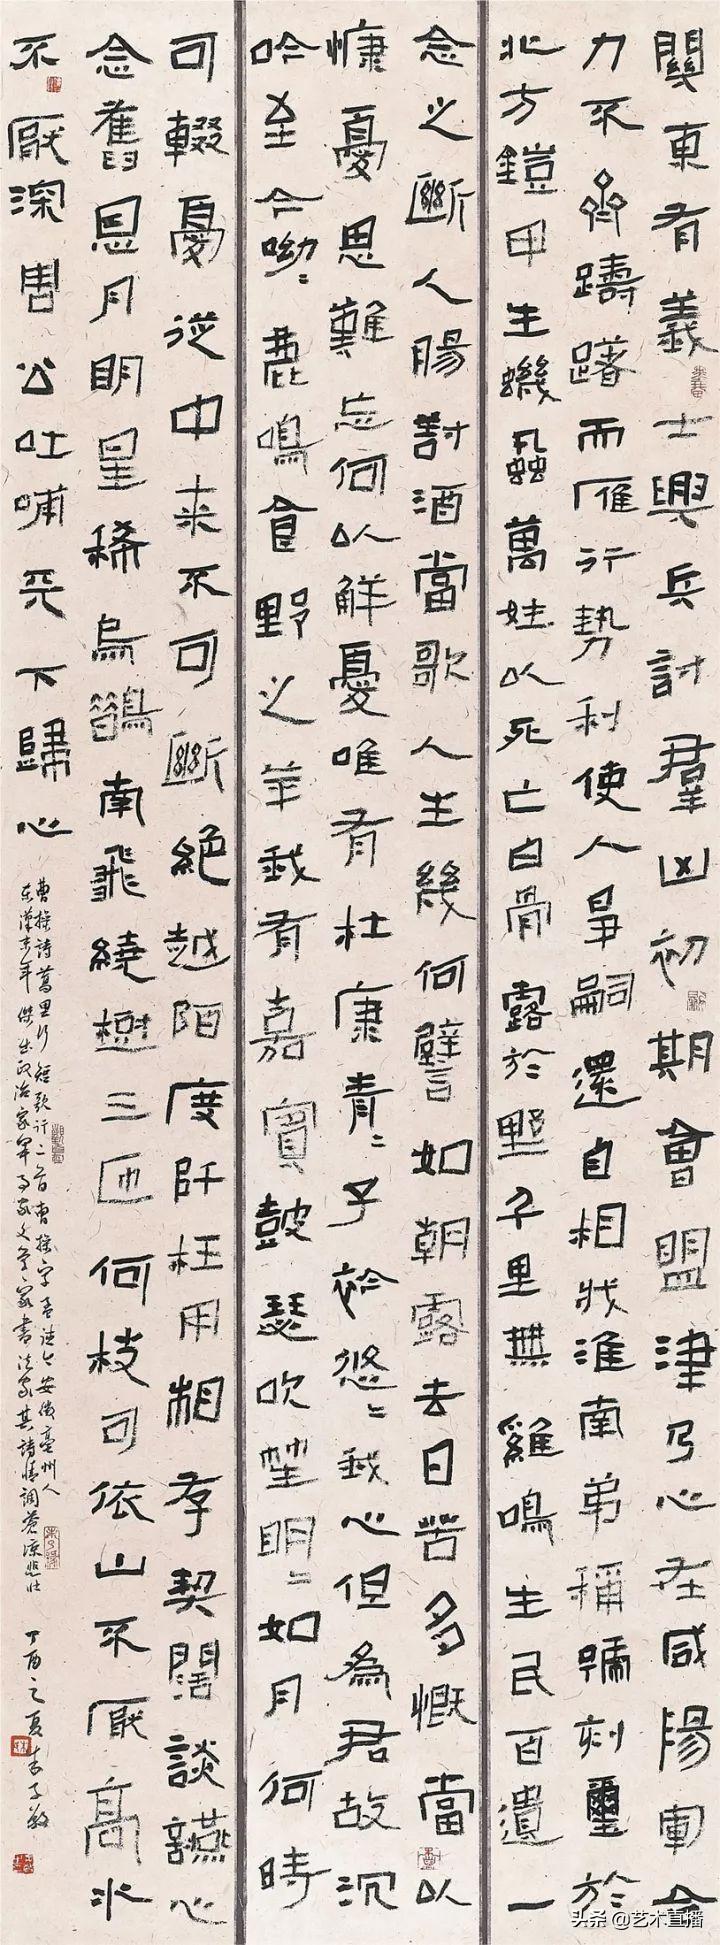 關東有義士興兵討羣凶初期會盟津乃心在咸陽軍合
力不齊躊躇而雁行勢利使人爭嗣還自相戕淮南弟稱號刻璽於
北方鎧甲生蟣蝨萬姓以死亡白骨露於野千里無雞鳴生民百遺一
念之斷人腸對酒當歌人生幾何譬如朝露去日苦多慨當以
慷憂思難忘何以解憂唯有杜康青〻子衿悠〻我心但為君故沉
吟至今呦〻鹿鳴食野之苹我有嘉賓鼓瑟吹笙明〻如月何時
可輟憂從中來不可斷絕越陌度阡枉用相存契闊談讌心
念舊恩月明星稀烏鵲南飛繞樹三匝何枝可依山不厭高水
不厭深周公吐哺天下歸心
曹操詩蒿里行短歌行二首曹操字孟德今安徽亳州人
東漢末年傑出政治家軍事家文學家書法家其詩情調蒼涼悲壯 丁酉之夏
头条 @艺术直播